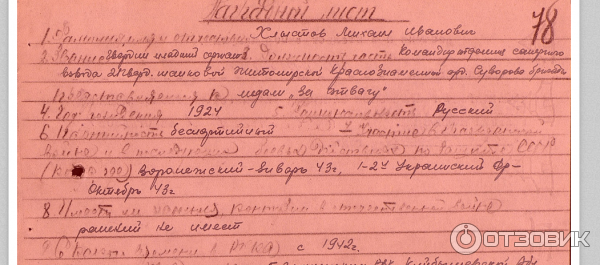 Наградной лист
78
1. Фамилия, имя и отчество Хлыстов Михаил Иванович
2. Звание гвардии младший сержант 3. Должность, часть Командир отделения саперного
взвода 24 гвард. танковой Житомирской Краснознаменной орд. Суворова бригады
Представляется к медали „За отвагу“
4. Год рождения 1924 5. Национальность Русский
6. Партийность беспартийный
войне
(когда, где) Воронежский - Январь 43г, 1-2й Украинский Фр-
Октябрь 43г
8. Имеет ли ранения, контузии в отечественной войне
ранений не имеет
9. С какого времени в РККА с 1942г.
ОТЗОВИК